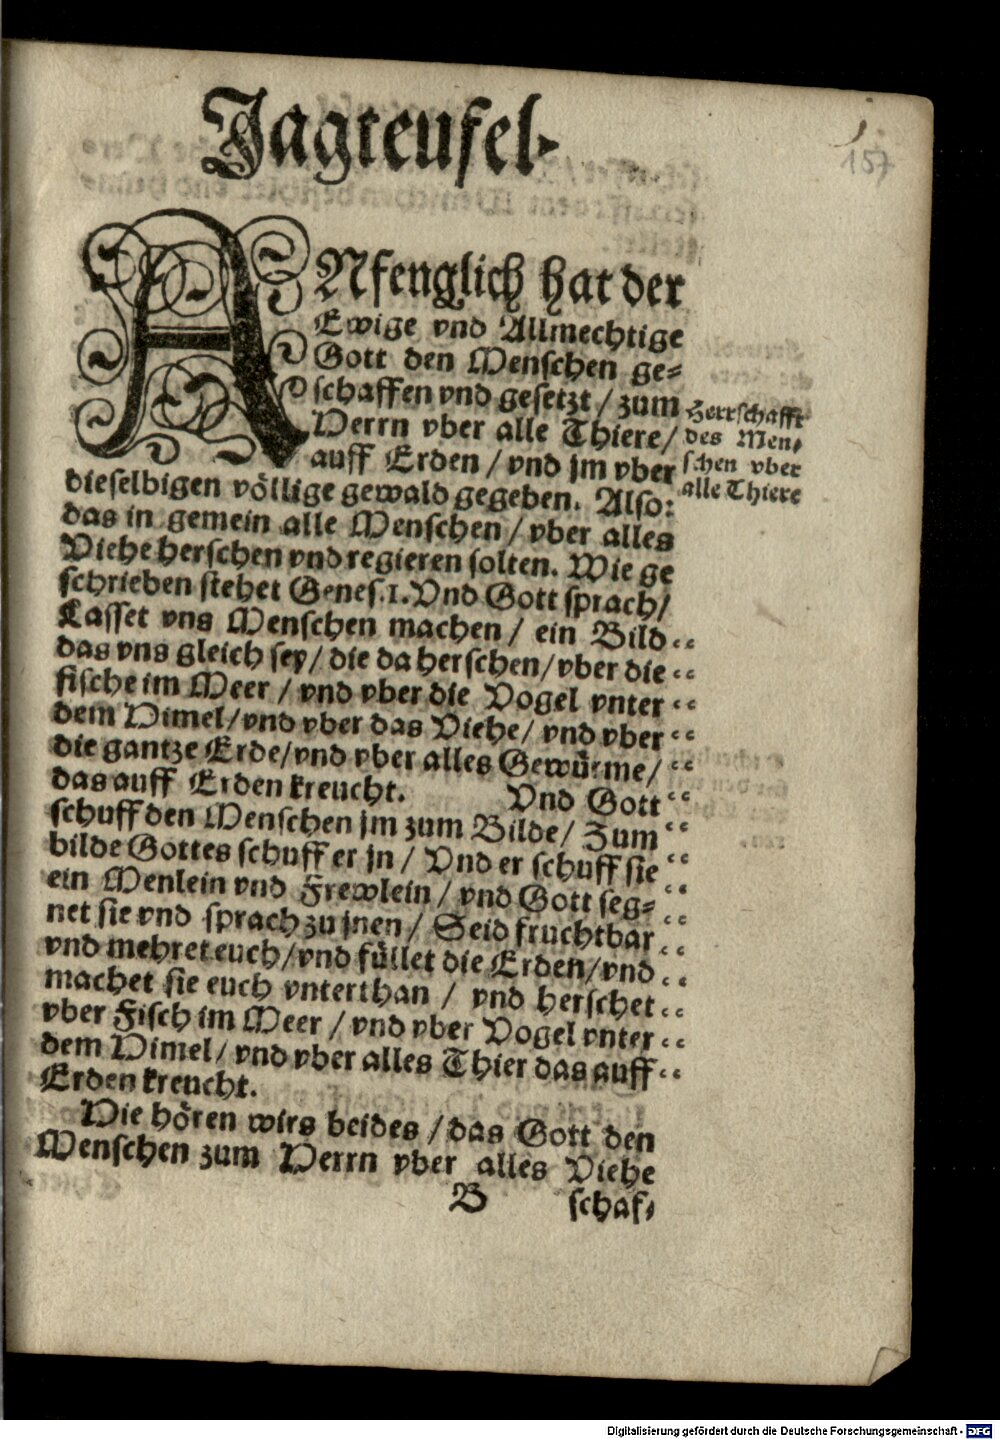 Jagteufel.
157
ANfenglich hat der
Ewige vnd Allmechtige
Gott den Menschen ge-
schaffen vnd gesetzt / zum
Herrn vber alle Thiere/
auff Erden / vnd jm vber
Herrschafft
des Men-
schen vber
alle Thiere
dieselbigen völlige gewald gegeben. Also:
das in gemein alle Menschen / vber alles
Viehe herschen vnd regieren solten. Wie ge
schrieben stehet Genes.1. Vnd Gott sprach/
Lasset vns Menschen machen / ein Bild
das vns gleich sey/ die da herschen/vber die
fische im Meer / vnd vber die Vogel vnter
dem Himel/vnd vber das Viehe/ vnd vber
die gantze Erde/vnd vber alles Gewürme/
das auff Erden kreucht. Vnd Gott
schuff den Menschen jm zum Bilde/ Zum
bilde Gottes schuff er jn / Vnd er schuff sie
ein Menlein vnd Frewlein / vnd Gott seg-
net sie vnd sprach zu jnen / Seid fruchtbar
vnd mehret euch/vnd füllet die Erden/vnd
machet sie euch vnterthan / vnd herschet
vber Fisch im Meer / vnd vber Vogel vnter
dem Himel/ vnd vber alles Thier das auff
Erden kreucht.
Hie hören wirs beides / das Gott den
Menschen zum Herrn vber alles Viehe
B schaf-
Digitalisierung gefördert durch die Deutsche Forschungsgemeinschaft - DFG